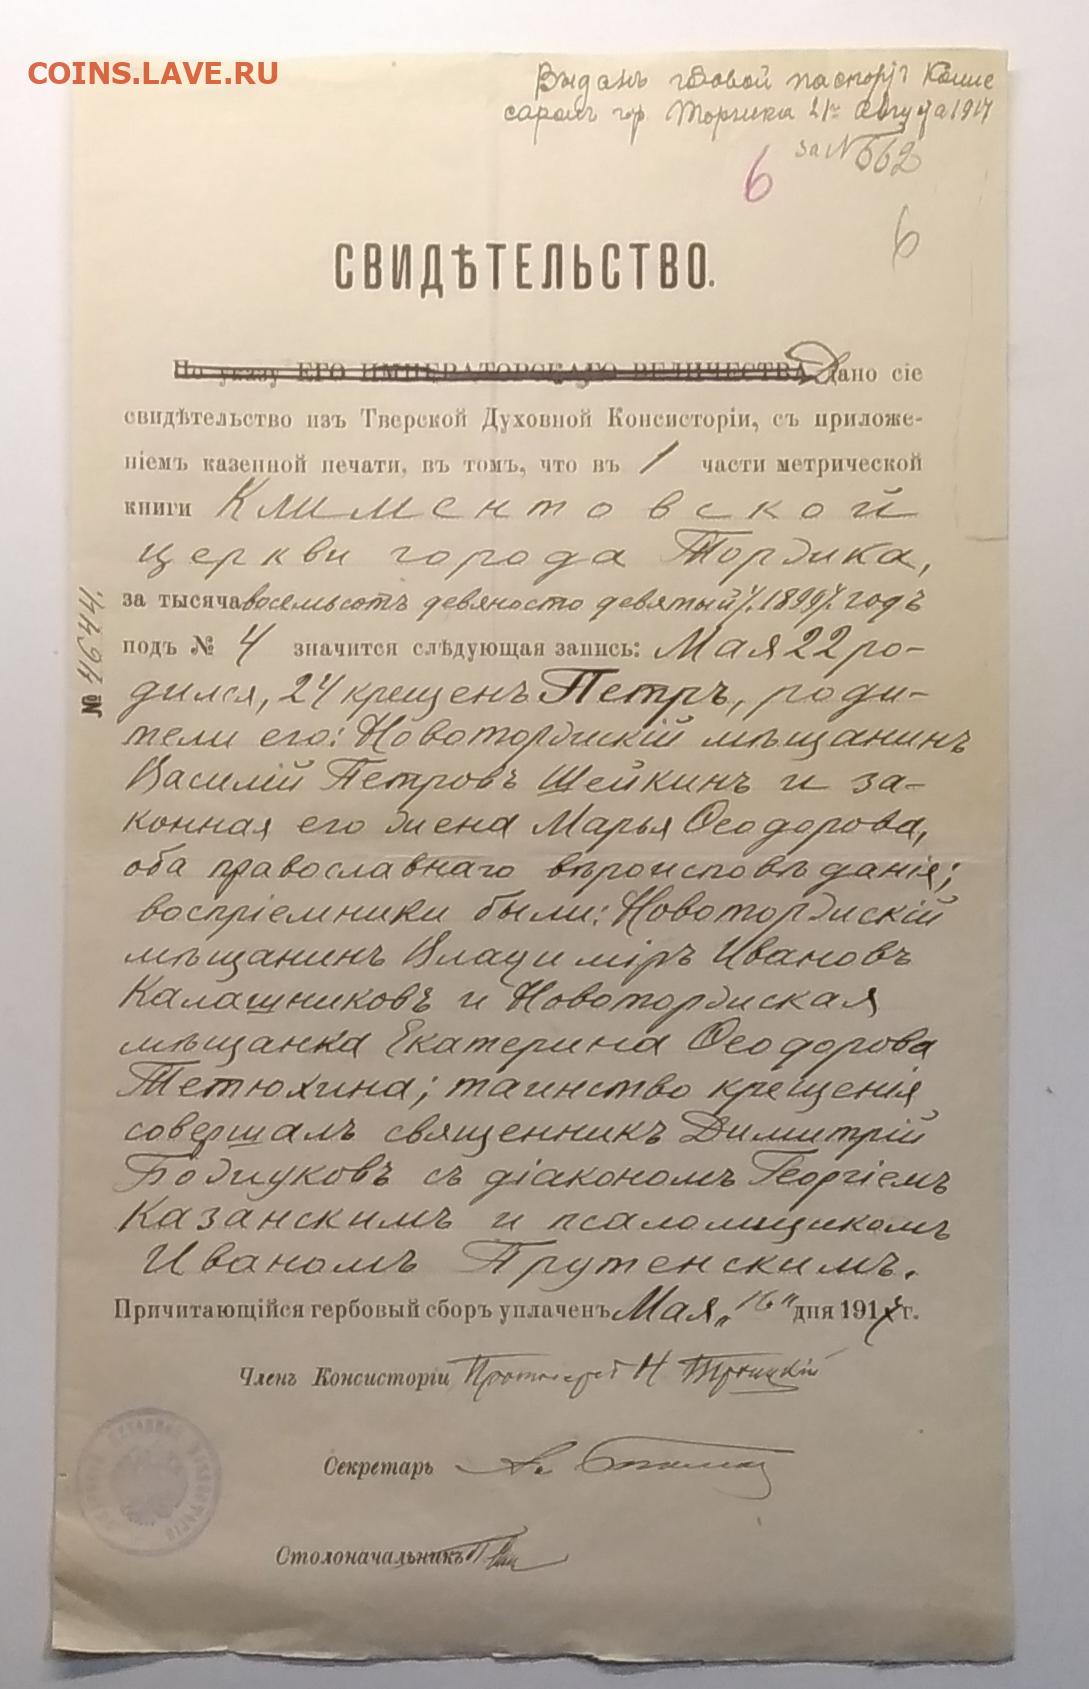 COINS.LAVE.RU
Выданъ годовой паспортъ Комис
саромъ гор Торжка 21го Августа 1917
за № 662
6
6
СВИДѢТЕЛЬСТВО.
По указу ЕГО ИМПЕРАТОРСКАГО ВЕЛИЧЕСТВА Дано сіе
свидѣтельство изъ Тверской Духовной Консисторіи, съ приложе-
ніемъ казенной печати, въ томъ, что въ 1 части метрической
книги Климентовской
церкви города Торжка,
за тысяча восемьсотъ девяносто девятый /.1899/. годъ
подъ № 4 значится слѣдующая запись: Мая 22 ро-
дился, 24 крещенъ Петръ, роди-
тели его: Новоторжскій мѣщанинъ
Василій Петровъ Щейкинъ и за-
конная его жена Марья Ѳеодорова,
оба православнаго вѣроисповѣданія;
воспріемники были: Новоторжскій
мѣщанинъ Владиміръ Ивановъ
Калашниковъ и Новоторжская
мѣщанка Екатерина Ѳеодорова
Тетюхина; таинство крещенія
совершалъ священникъ Димитрій
съ діакономъ Георгіемъ
Казанскимъ и псаломщикомъ
Иваномъ Прутенскимъ.
Причитающійся гербовый сборъ уплаченъ Мая „16" дня 1917 г.
Членъ Консисторіи Протоіерей Н Троицкій
Секретарь
Столоначальникъ
№ 4644.